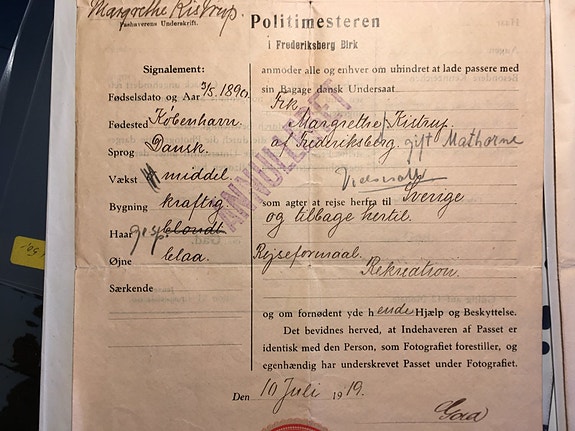 Margrethe Kistrup
Pashaverens Underskrift.
Politimesteren
i Frederiksberg Birk
Signalement:
Fødselsdato og Aar 3/5. 1890.
Fødested København.
Sprog Dansk.
Vækst middel
Bygning kraftig
Haar blondt
Øjne blaa.
Særkende
anmoder alle og enhver om uhindret at lade passere med
sin Bagage dansk Undersaat
Frk
Margrethe Kistrup.
af Frederiksberg. gift Mathorne
som agter at rejse herfra til Sverige
og tilbage hertil.
Rejseformaal.
Rekreation.
og om fornødent yde hende Hjælp og Beskyttelse.
Det bevidnes herved, at Indehaveren af Passet er
identisk med den Person, som Fotografiet forestiller, og
egenhændig har underskrevet Passet under Fotografiet.
Den 10 Juli 1919.
ANNULLERET